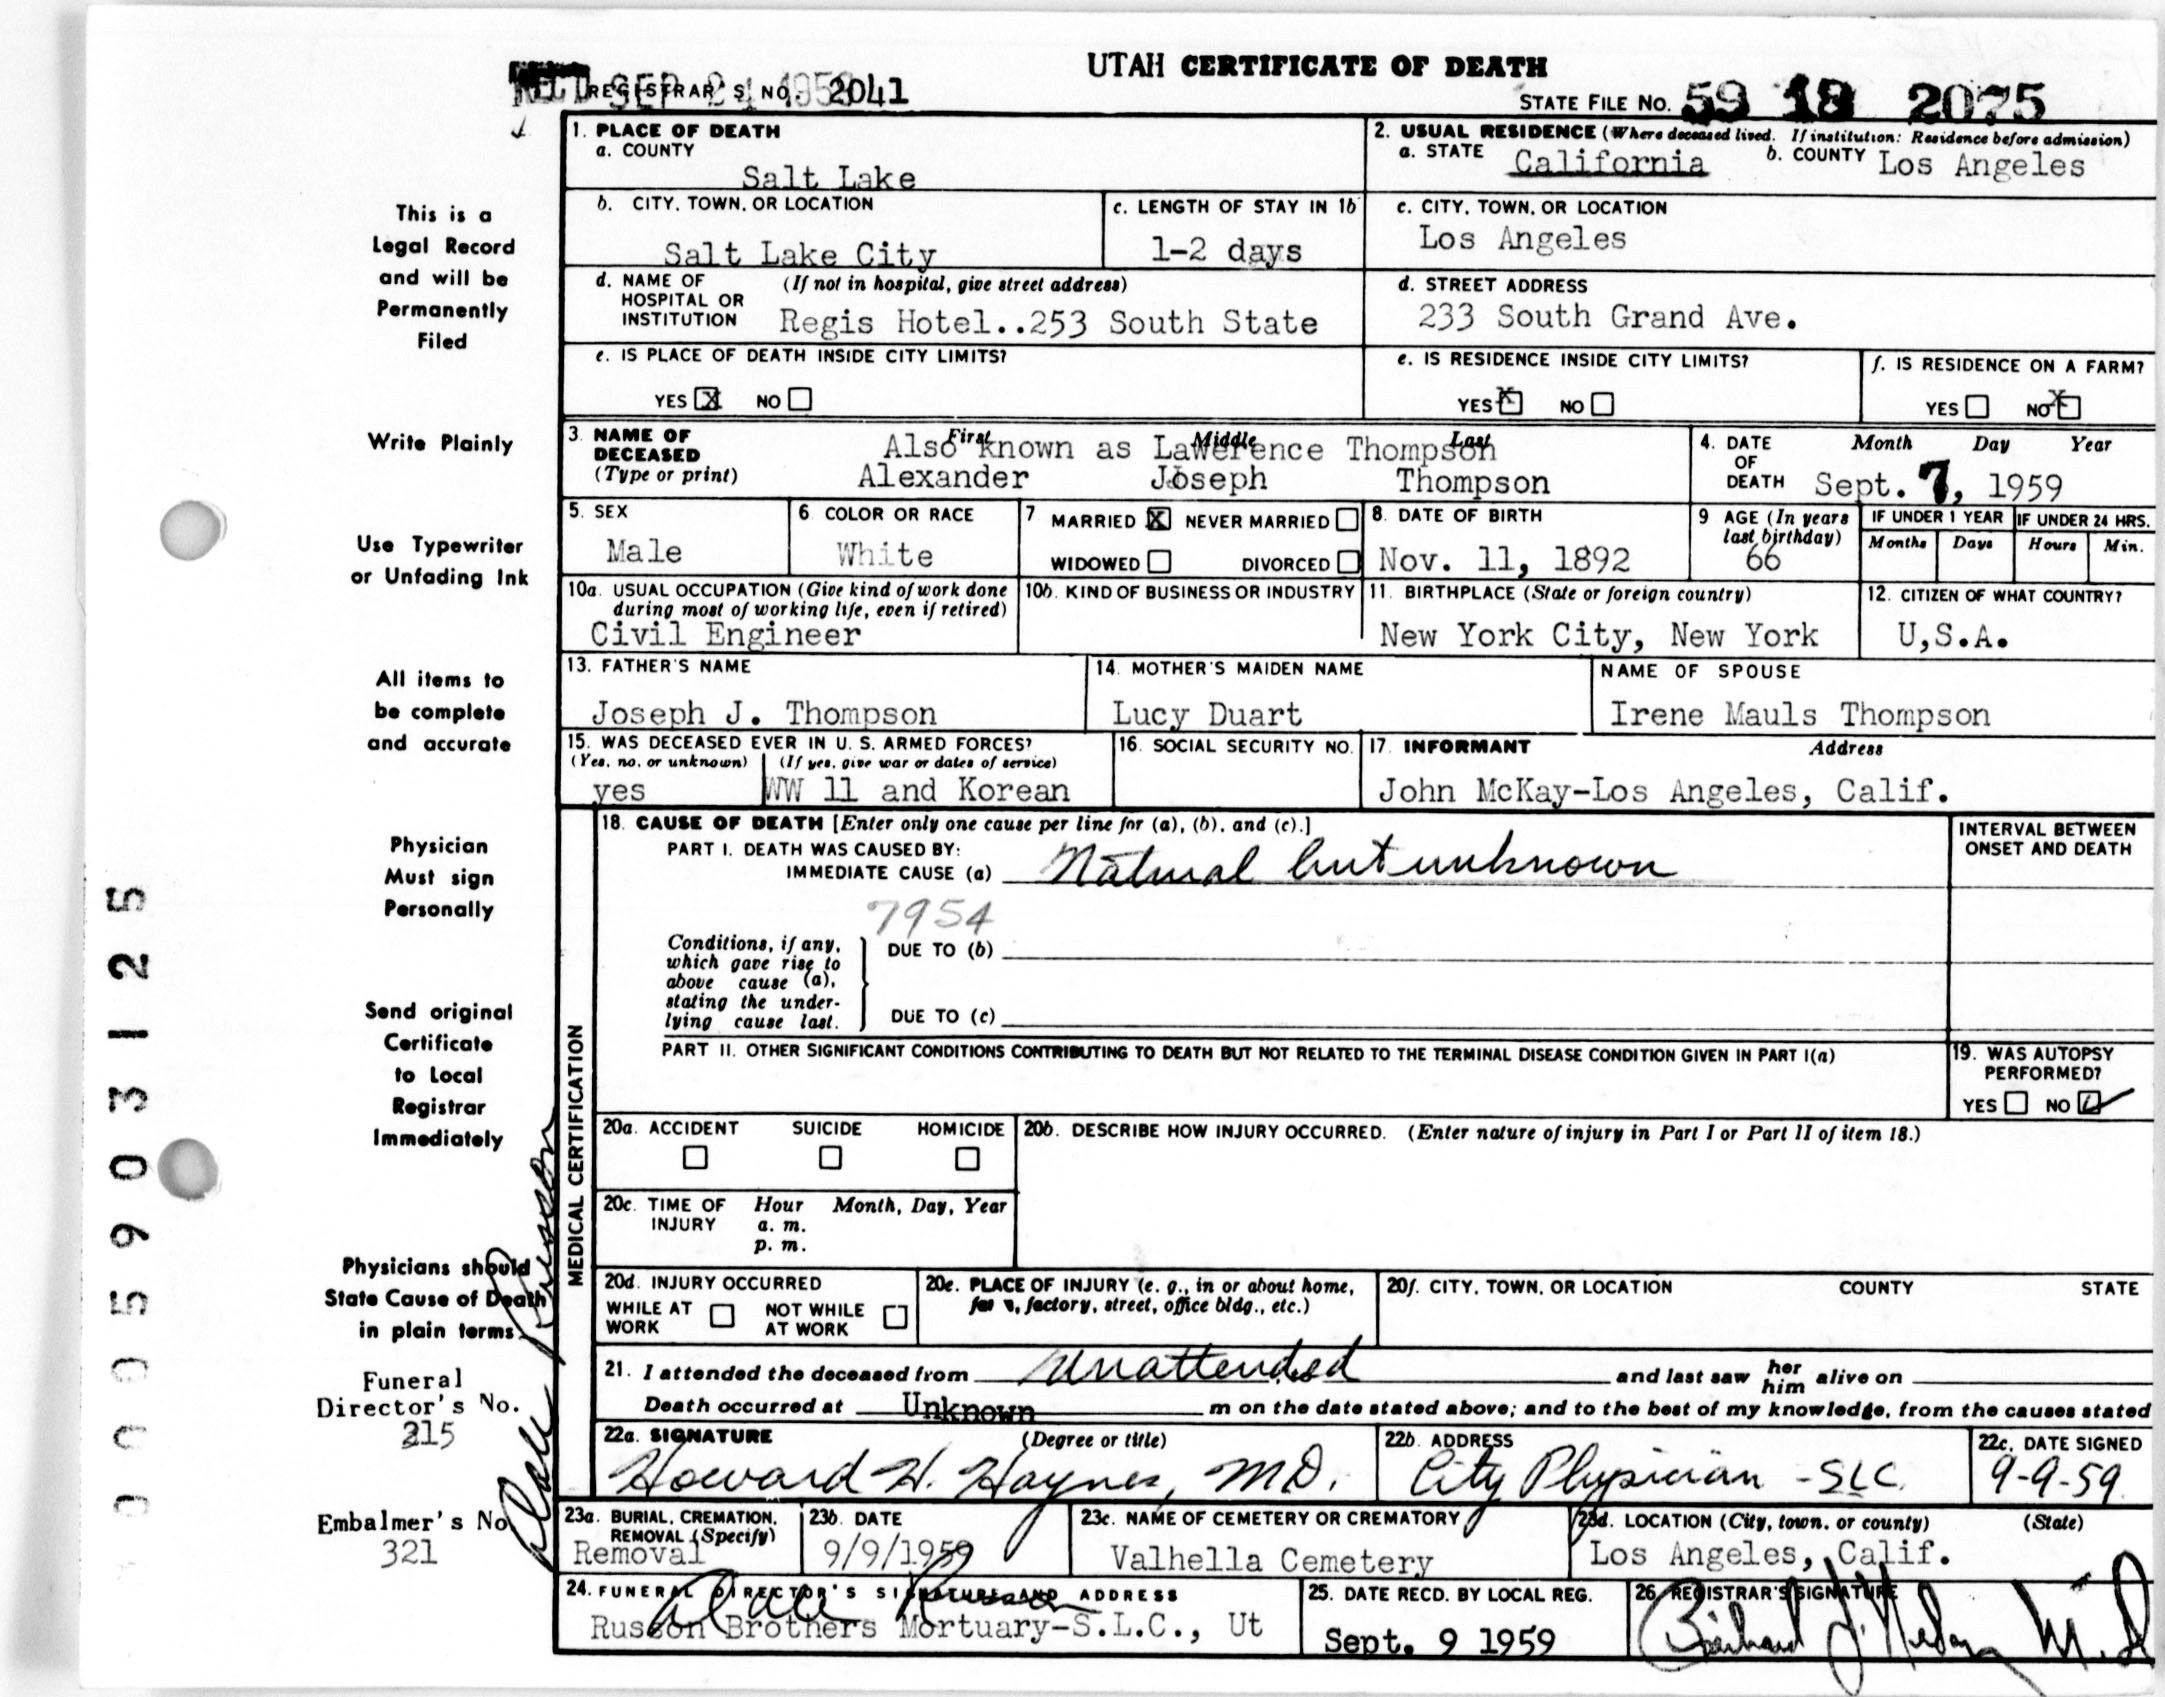 UTAH CERTIFICATE OF DEATH
REC'D SEP 24 1959
REGISTRAR'S NO. 2041
STATE FILE NO. 59 18 2075
1. PLACE OF DEATH
a. COUNTY
Salt Lake
2. USUAL RESIDENCE (Where deceased lived. If institution: Residence before admission)
a. STATE California b. COUNTY Los Angeles
b. CITY, TOWN, OR LOCATION
Salt Lake City
c. LENGTH OF STAY IN 1b
1-2 days
c. CITY, TOWN, OR LOCATION
Los Angeles
d. NAME OF HOSPITAL OR INSTITUTION (If not in hospital, give street address)
Regis Hotel..253 South State
d. STREET ADDRESS
233 South Grand Ave.
e. IS PLACE OF DEATH INSIDE CITY LIMITS?
YES X NO
e. IS RESIDENCE INSIDE CITY LIMITS?
YES X NO
f. IS RESIDENCE ON A FARM?
YES NO X
3. NAME OF DECEASED (Type or print)
First Middle Last
Also known as Lawerence Thompson
Alexander Joseph Thompson
4. DATE OF DEATH Month Day Year
Sept. 7, 1959
5. SEX
Male
6. COLOR OR RACE
White
7. MARRIED X NEVER MARRIED
WIDOWED DIVORCED
8. DATE OF BIRTH
Nov. 11, 1892
9. AGE (In years last birthday)
66
IF UNDER 1 YEAR
Months Days
IF UNDER 24 HRS.
Hours Min.
10a. USUAL OCCUPATION (Give kind of work done during most of working life, even if retired)
Civil Engineer
10b. KIND OF BUSINESS OR INDUSTRY
11. BIRTHPLACE (State or foreign country)
New York City, New York
12. CITIZEN OF WHAT COUNTRY?
U,S.A.
13. FATHER'S NAME
Joseph J. Thompson
14. MOTHER'S MAIDEN NAME
Lucy Duart
NAME OF SPOUSE
Irene Mauls Thompson
15. WAS DECEASED EVER IN U. S. ARMED FORCES?
(Yes, no, or unknown) (If yes, give war or dates of service)
yes WW 11 and Korean
16. SOCIAL SECURITY NO.
17. INFORMANT Address
John McKay-Los Angeles, Calif.
MEDICAL CERTIFICATION
18. CAUSE OF DEATH [Enter only one cause per line for (a), (b), and (c).]
PART I. DEATH WAS CAUSED BY:
IMMEDIATE CAUSE (a) Natural but unknown
7954
Conditions, if any, which gave rise to above cause (a), stating the underlying cause last.
DUE TO (b)
DUE TO (c)
INTERVAL BETWEEN ONSET AND DEATH
PART II. OTHER SIGNIFICANT CONDITIONS CONTRIBUTING TO DEATH BUT NOT RELATED TO THE TERMINAL DISEASE CONDITION GIVEN IN PART I(a)
19. WAS AUTOPSY PERFORMED?
YES NO
20a. ACCIDENT SUICIDE HOMICIDE
20b. DESCRIBE HOW INJURY OCCURRED. (Enter nature of injury in Part I or Part II of item 18.)
20c. TIME OF INJURY Hour Month, Day, Year
a. m.
p. m.
20d. INJURY OCCURRED
WHILE AT WORK NOT WHILE AT WORK
20e. PLACE OF INJURY (e. g., in or about home, farm, factory, street, office bldg., etc.)
20f. CITY, TOWN, OR LOCATION COUNTY STATE
21. I attended the deceased from Unattended and last saw her him alive on
Death occurred at Unknown m on the date stated above; and to the best of my knowledge, from the causes stated
22a. SIGNATURE (Degree or title)
Howard H. Haynes, M.D.
22b. ADDRESS
City Physician - SLC.
22c. DATE SIGNED
9-9-59
23a. BURIAL, CREMATION, REMOVAL (Specify)
Removal
23b. DATE
9/9/1959
23c. NAME OF CEMETERY OR CREMATORY
Valhella Cemetery
23d. LOCATION (City, town, or county) (State)
Los Angeles, Calif.
24. FUNERAL DIRECTOR'S SIGNATURE AND ADDRESS
Dale Russon
Russon Brothers Mortuary-S.L.C., Ut
25. DATE RECD. BY LOCAL REG.
Sept. 9 1959
26. REGISTRAR'S SIGNATURE
This is a
Legal Record
and will be
Permanently
Filed
Write Plainly
Use Typewriter
or Unfading Ink
All items to
be complete
and accurate
Physician
Must sign
Personally
Send original
Certificate
to Local
Registrar
Immediately
Physicians should
State Cause of Death
in plain terms
Funeral
Director's No.
215
Embalmer's No.
321
Dale Russon
0005903125